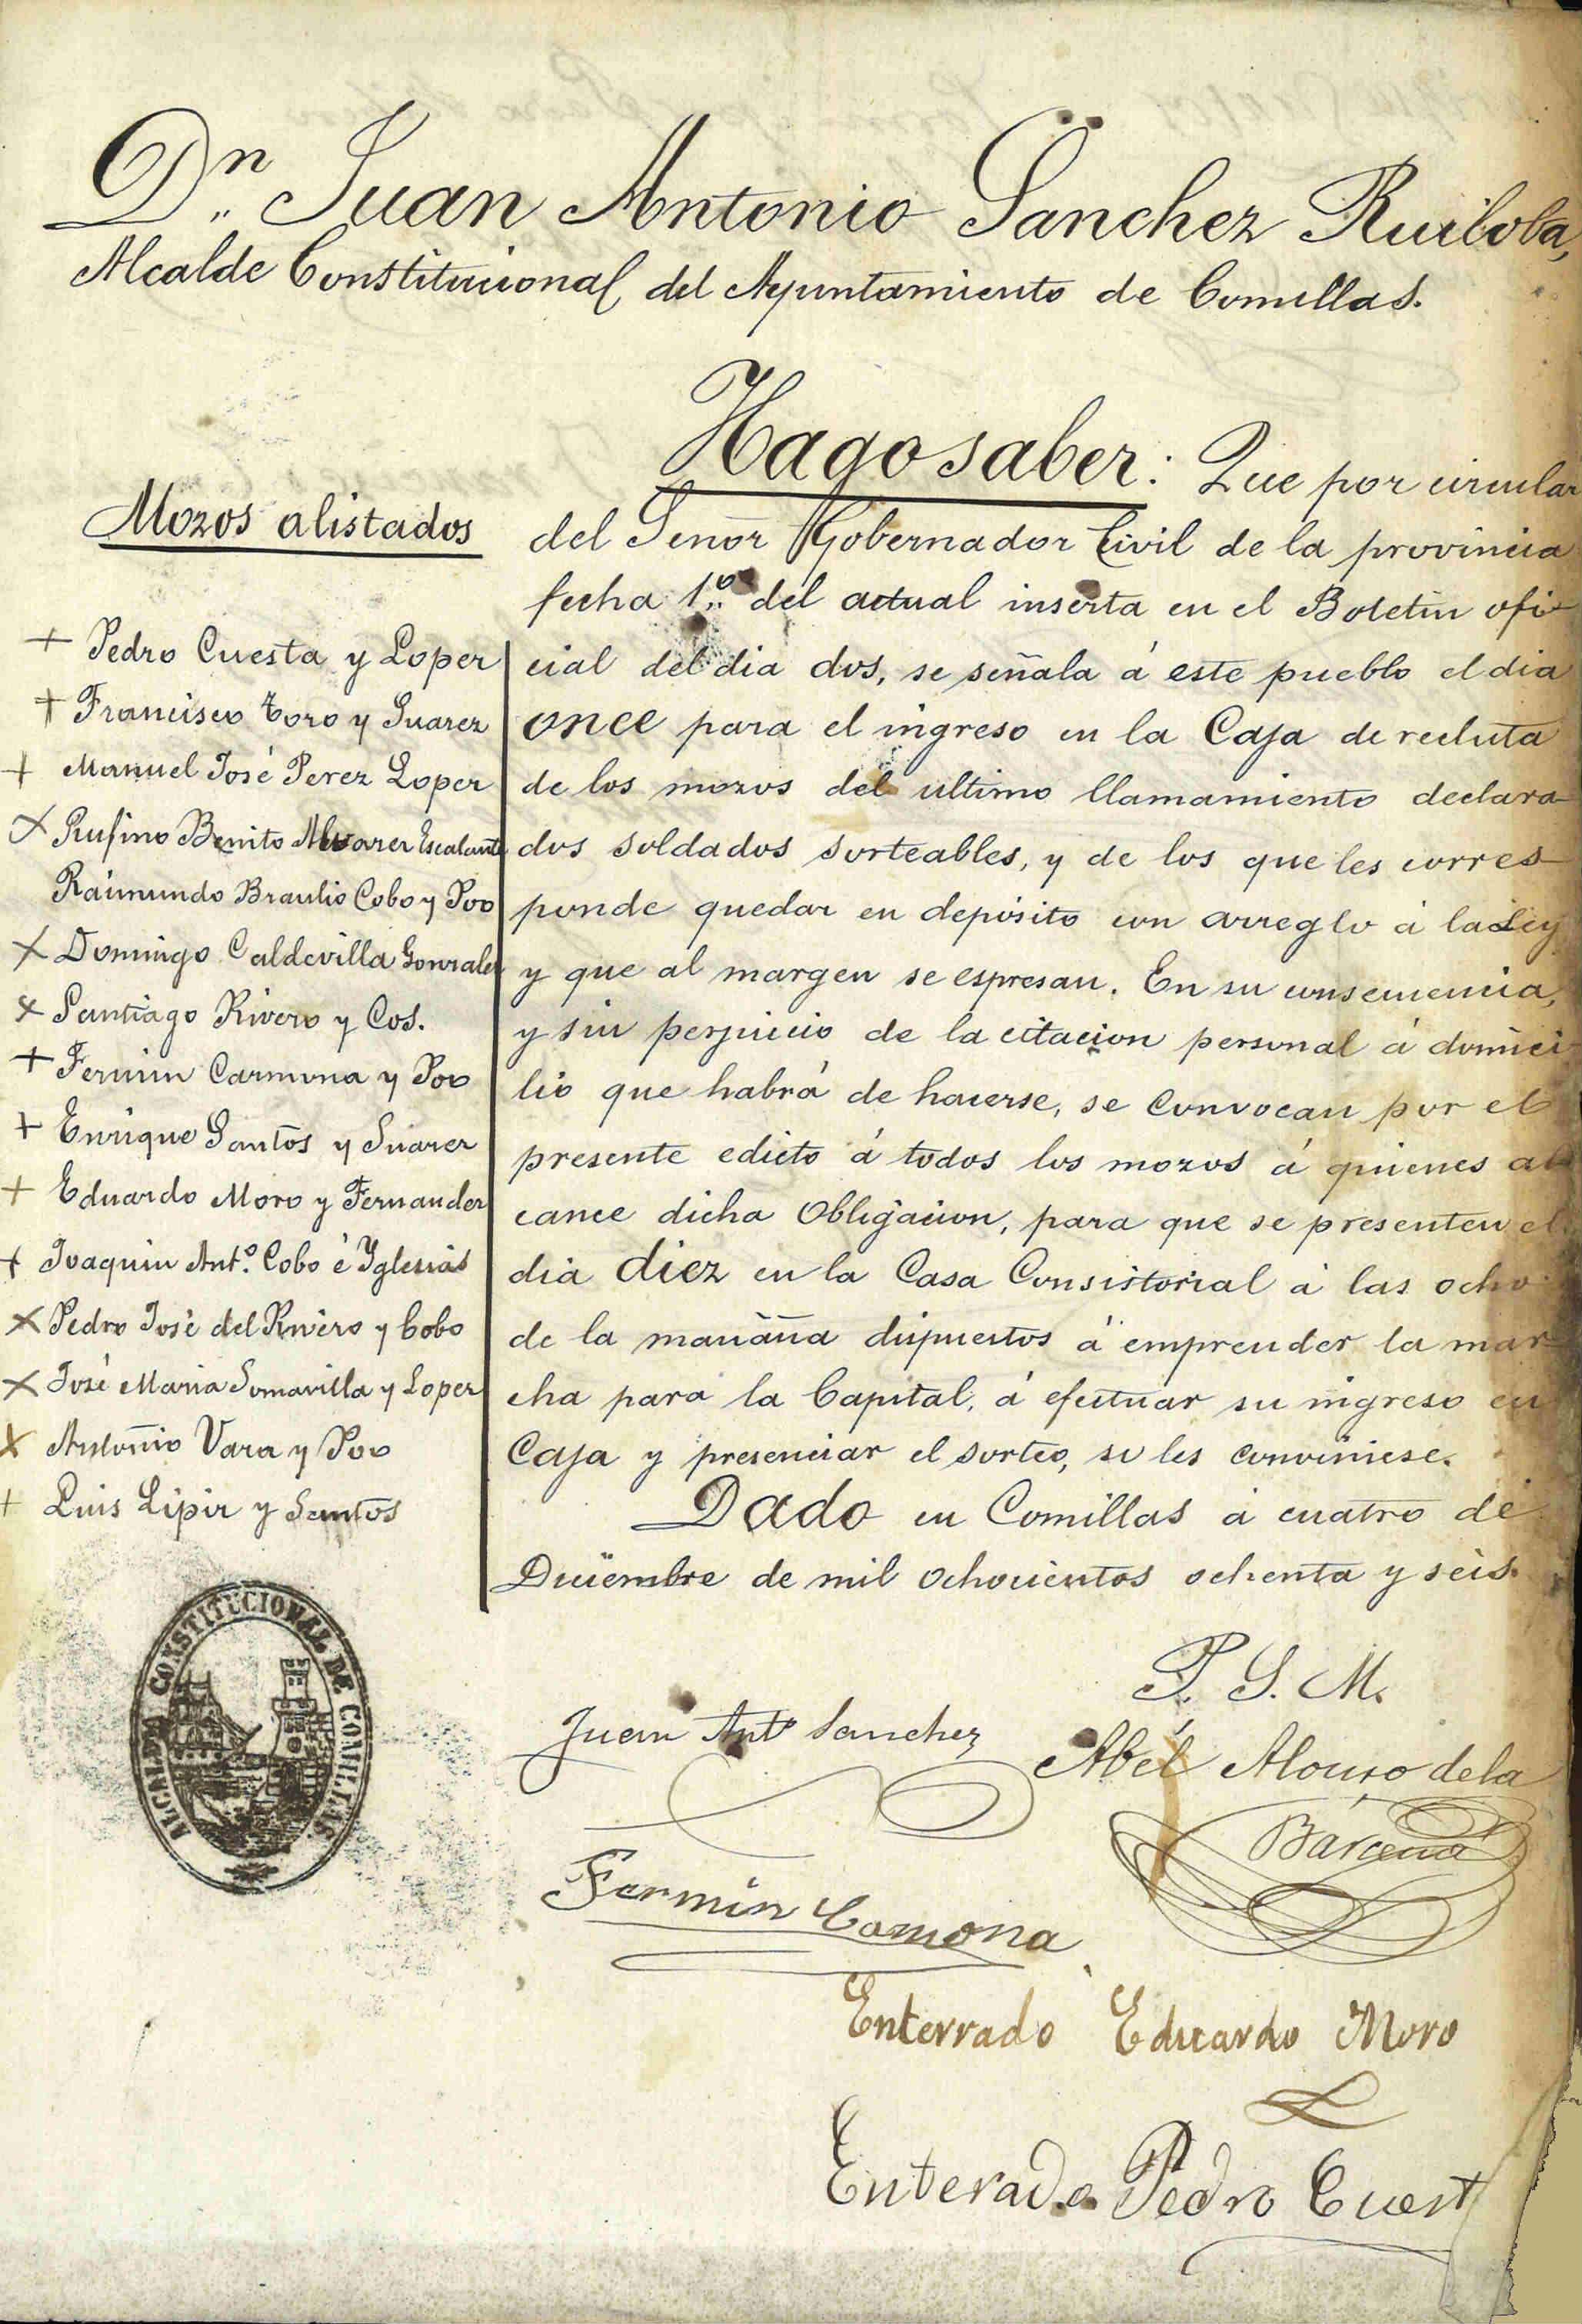 Dn. Juan Antonio Sanchez Ruiloba,
Alcalde Constitucional del Ayuntamiento de Comillas.
Hago saber: Que por circular
del Señor Gobernador Civil de la provincia
fecha 1.º del actual inserta en el Boletin ofi-
cial del dia dos, se señala á este pueblo el dia
once para el ingreso en la Caja de recluta
de los mozos del ultimo llamamiento declara-
dos soldados sorteables, y de los que les corres-
ponde quedar en depósito con arreglo á la Ley
y que al margen se espresan. En su consecuencia,
y sin perjuicio de la citacion personal á domici-
lio que habrá de hacerse, se convocan por el
presente edicto á todos los mozos á quienes al-
cance dicha Obligacion, para que se presenten el
dia diez en la Casa Consistorial á las ocho
de la mañana dispuestos á emprender la mar-
cha para la Capital, á efectuar su ingreso en
Caja y presenciar el sorteo, si les conviniese.
Dado en Comillas á cuatro de
Diciembre de mil ochocientos ochenta y seis.
Mozos alistados
+ Pedro Cuesta y Lopez
+ Francisco Toro y Suarez
+ Manuel José Perez Lopez
X Rufino Benito Alvarez Escalante
Raimundo Braulio Cobo y Poo
X Domingo Caldevilla Gonzalez
X Santiago Rivero y Cos.
+ Fermin Carmona y Poo
+ Enrique Santos y Suarez
+ Eduardo Moro y Fernandez
+ Joaquin Ant.º Cobo é Yglesias
X Pedro José del Rivero y Cobo
X José Maria Somavilla y Lopez
X Antonio Vara y Poo
+ Luis Lipiz y Santos
ALCALDIA CONSTITUCIONAL DE COMILLAS
P. S. M.
Juan Antº Sanchez
Abél Alonso de la
Bárcena
Fermin Camona
Enterrado Eduardo Moro
Enterado Pedro Cuest